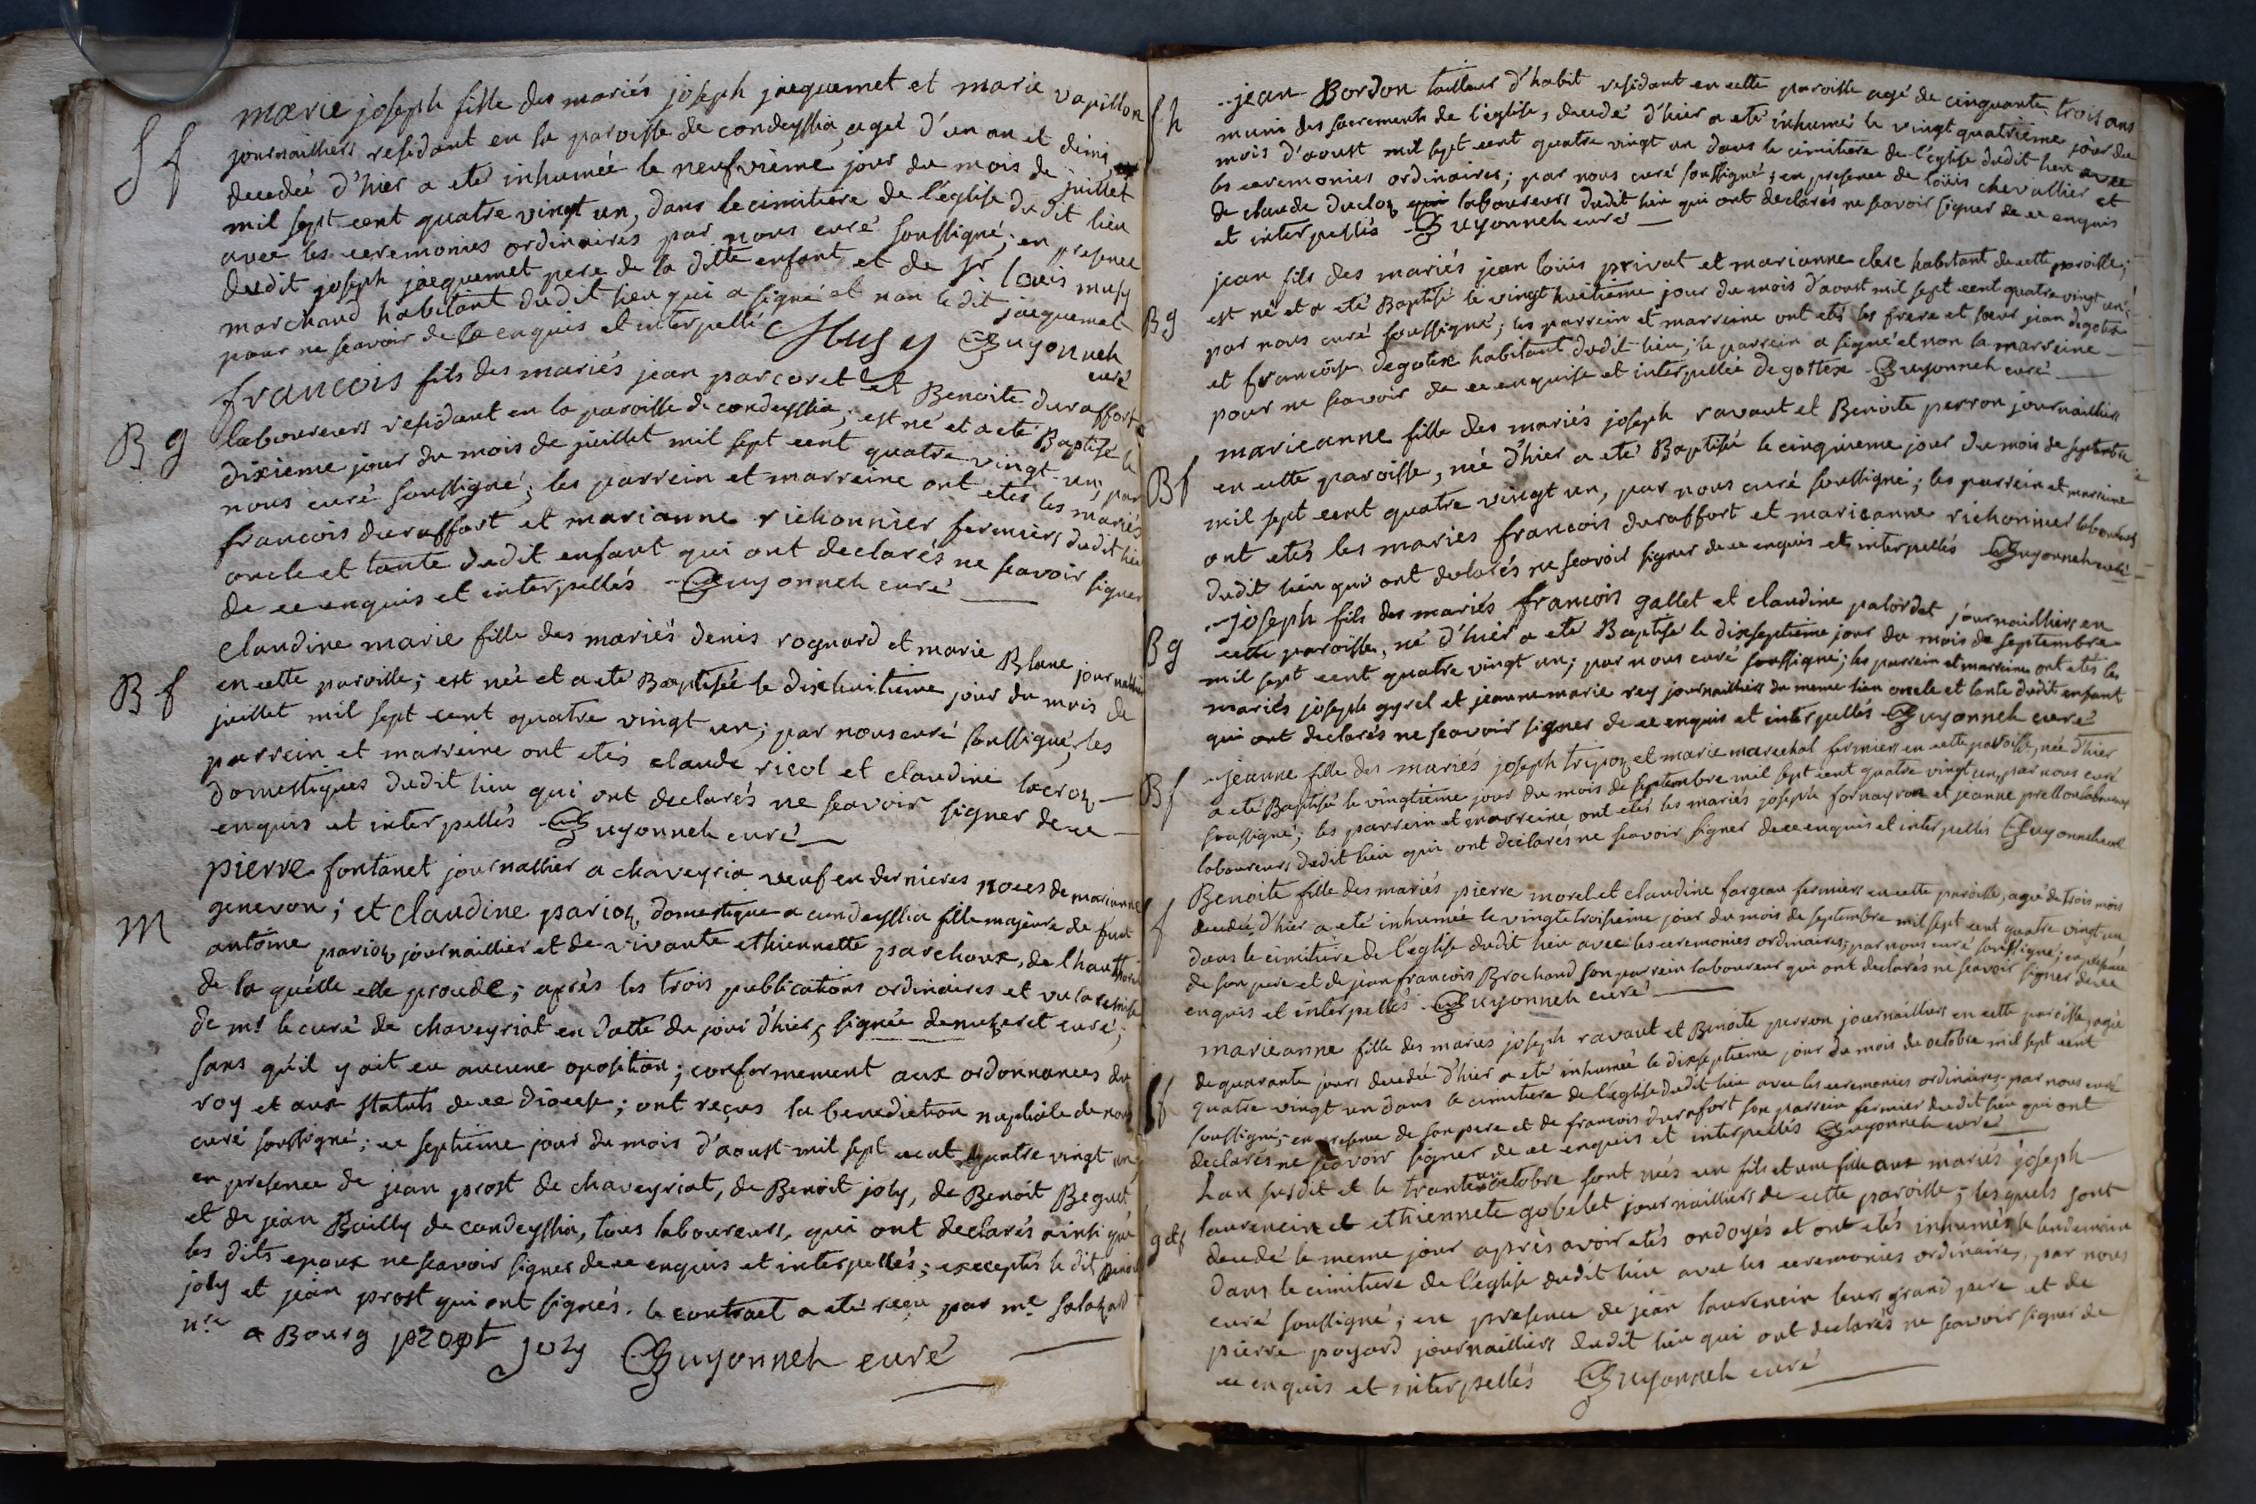 marie joseph fille des mariés joseph jacquemet et marie vapillon
Sf
journailliers residant en la paroisse de condeyssia, agée d'un an et demi
decedée d'hier a eté inhumée le neufvieme jour du mois de juillet
mil sept cent quatre vingt un, dans le cimitiere de l'église dudit lieu
avec les ceremonies ordinaires par nous curé soussigné; en presence
dudit joseph jacquemet pere de la ditte enfant et de sr louis musy
marchand habitant dudit lieu qui a signé et non le dit jacquemet
pour ne scavoir de ce enquis et interpellé Musy Guyonneh
curé
francois fils des mariés jean parcoret et Benoite duraffort
Bg
laboureurs residant en la paroisse de condeyssia; est né et a eté Baptisé le
dixieme jour du mois de juillet mil sept cent quatre vingt un, par
nous curé soussigné; les parrein et marreine ont etés les mariés
francois duraffort et marianne richonnier fermiers dudit lieu
oncle et tante dudit enfant qui ont declarés ne scavoir signer
de ce enquis et interpellés Guyonneh curé
Claudine marie fille des mariés denis rognard et marie Blanc
Bf
en cette paroisse; est née et a eté Baptisée le dixhuitieme jour du mois de
juillet mil sept cent quatre vingt un; par nous curé soussigné, les
parrein et marreine ont etés claude ricol et claudine lacroz
domestiques dudit lieu qui ont declarés ne scavoir signer de ce
enquis et interpellés Guyonneh curé
pierre fontanet journallier a chaveyria veuf en dernieres noces de marianne
M
genevon; et Claudine parioz domestique a condeyssia fille majeure de feut
antoine parioz journaillier et de vivante ethiennette parchoux, de l'hautthorité
de la quelle elle procede; après les trois publications ordinaires et vu la remise
de mr le curé de chaveyriat en datte du jour d'hier, signée curé;
sans qu'il y ait eu aucune oposition; conformement aux ordonnances du
roy et aux statuts de ce diocese; ont reçus la benediction nuptiale de nous
curé soussigné; ce septieme jour du mois d'aoust mil sept cent quatre vingt un,
en presence de jean prost de chaveyriat, de Benoit joly, de Benoit Beguet
et de jean Bailly de condeyssia, tous laboureurs, qui ont declarés ainsi que
les dits epoux ne scavoir signer de ce enquis et interpellés; exceptés le dit Benoit
joly et jean prost qui ont signés. le contract a eté reçu par me
nre a Bourg prost joly Guyonneh curé
jean Bordon tailleur d'habit residant en cette paroisse agé de cinquante trois ans
Sh
muni des sacrements de l'église, decedé d'hier a eté inhumé le vingt quatrieme jour du
mois d'aoust mil sept cent quatre vingt un dans le cimitiere de l'église dudit lieu avec
les ceremonies ordinaires; par nous curé soussigné; en presence de loüis chevallier et
de claude ducloz laboureurs dudit lieu qui ont declarés ne scavoir signer de ce enquis
et interpellés Guyonneh curé
jean fils des mariés jean loüis privat et marianne clerc habitant de cette paroisse;
Bg
est né et a eté Baptisé le vingt huitieme jour du mois d'aoust mil sept cent quatre vingt un;
par nous curé soussigné; les parrein et marreine ont etés les frere et sœur jean degotex
et francoise degotex habitant dudit lieu; le parrein a signé et non la marreine
pour ne scavoir de ce enquise et interpellée degottex Guyonneh curé
marieanne fille des mariés joseph ravaut et Benoite perron journailliers
Bf
en cette paroisse, née d'hier a eté Baptisée le cinquieme jour du mois de septembre
mil sept cent quatre vingt un, par nous curé soussigné; les parrein et marreine
ont etés les mariés francois duraffort et marieanne richonnier laboureurs
dudit lieu qui ont declarés ne scavoir signer de ce enquis et interpellés Guyonneh curé
joseph fils des mariés francois gallet et claudine palordet journailliers en
Bg
cette paroisse, né d'hier a eté Baptisé le dixseptieme jour du mois de septembre
mil sept cent quatre vingt un; par nous curé soussigné; les parrein et marreine ont etés les
mariés joseph gyrel et jeannemarie rey journailliers du meme lieu oncle et tante dudit enfant
qui ont declarés ne scavoir signer de ce enquis et interpellés Guyonneh curé
jeanne fille des mariés joseph tripoz et marie marechal fermiers en cette paroisse, née d'hier
Bf
a eté Baptisée le vingtieme jour du mois de septembre mil sept cent quatre vingt un, par nous curé
soussigné; les parrein et marreine ont etés les mariés joseph fornayron et jeanne
laboureurs dudit lieu qui ont declarés ne scavoir signer de ce enquis et interpellés Guyonneh curé
Benoite fille des mariés pierre morel et claudine fargeau fermiers en cette paroisse, agée de trois mois
f
decedée d'hier a eté inhumée le vingt troisieme jour du mois de septembre mil sept cent quatre vingt un
dans le cimitiere de l'eglise dudit lieu avec les ceremonies ordinaires; par nous curé soussigné; en presence
de son pere et de jean francois Brochand son parrein laboureur qui ont declarés ne scavoir signer de ce
enquis et interpellés Guyonneh curé
marieanne fille des mariés joseph ravaut et Benoite perron journailliers en cette paroisse, agée
Sf
de quarante jours decedée d'hier a eté inhumée le dixseptieme jour du mois de octobre mil sept cent
quatre vingt un dans le cimitiere de l'église dudit lieu avec les ceremonies ordinaires par nous curé
soussigné; en presence de son pere et de francois durafort son parrein fermier dudit lieu qui ont
declarés ne scavoir signer de ce enquis et interpellés Guyonneh curé
L'an susdit et le trante un octobre sont nés un fils et une fille aux mariés joseph
laurencin et ethiennete gobelet journailliers de cette paroisse; lesquels sont
g et f
decedé le meme jour après avoir etés ondoyés et ont etés inhumés le lendemain
dans le cimitiere de l'eglise dudit lieu avec les ceremonies ordinaires, par nous
curé soussigné; en presence de jean laurencin leurs grand pere et de
pierre poyard journailliers dudit lieu qui ont declarés ne scavoir signer de
ce enquis et interpellés Guyonneh curé